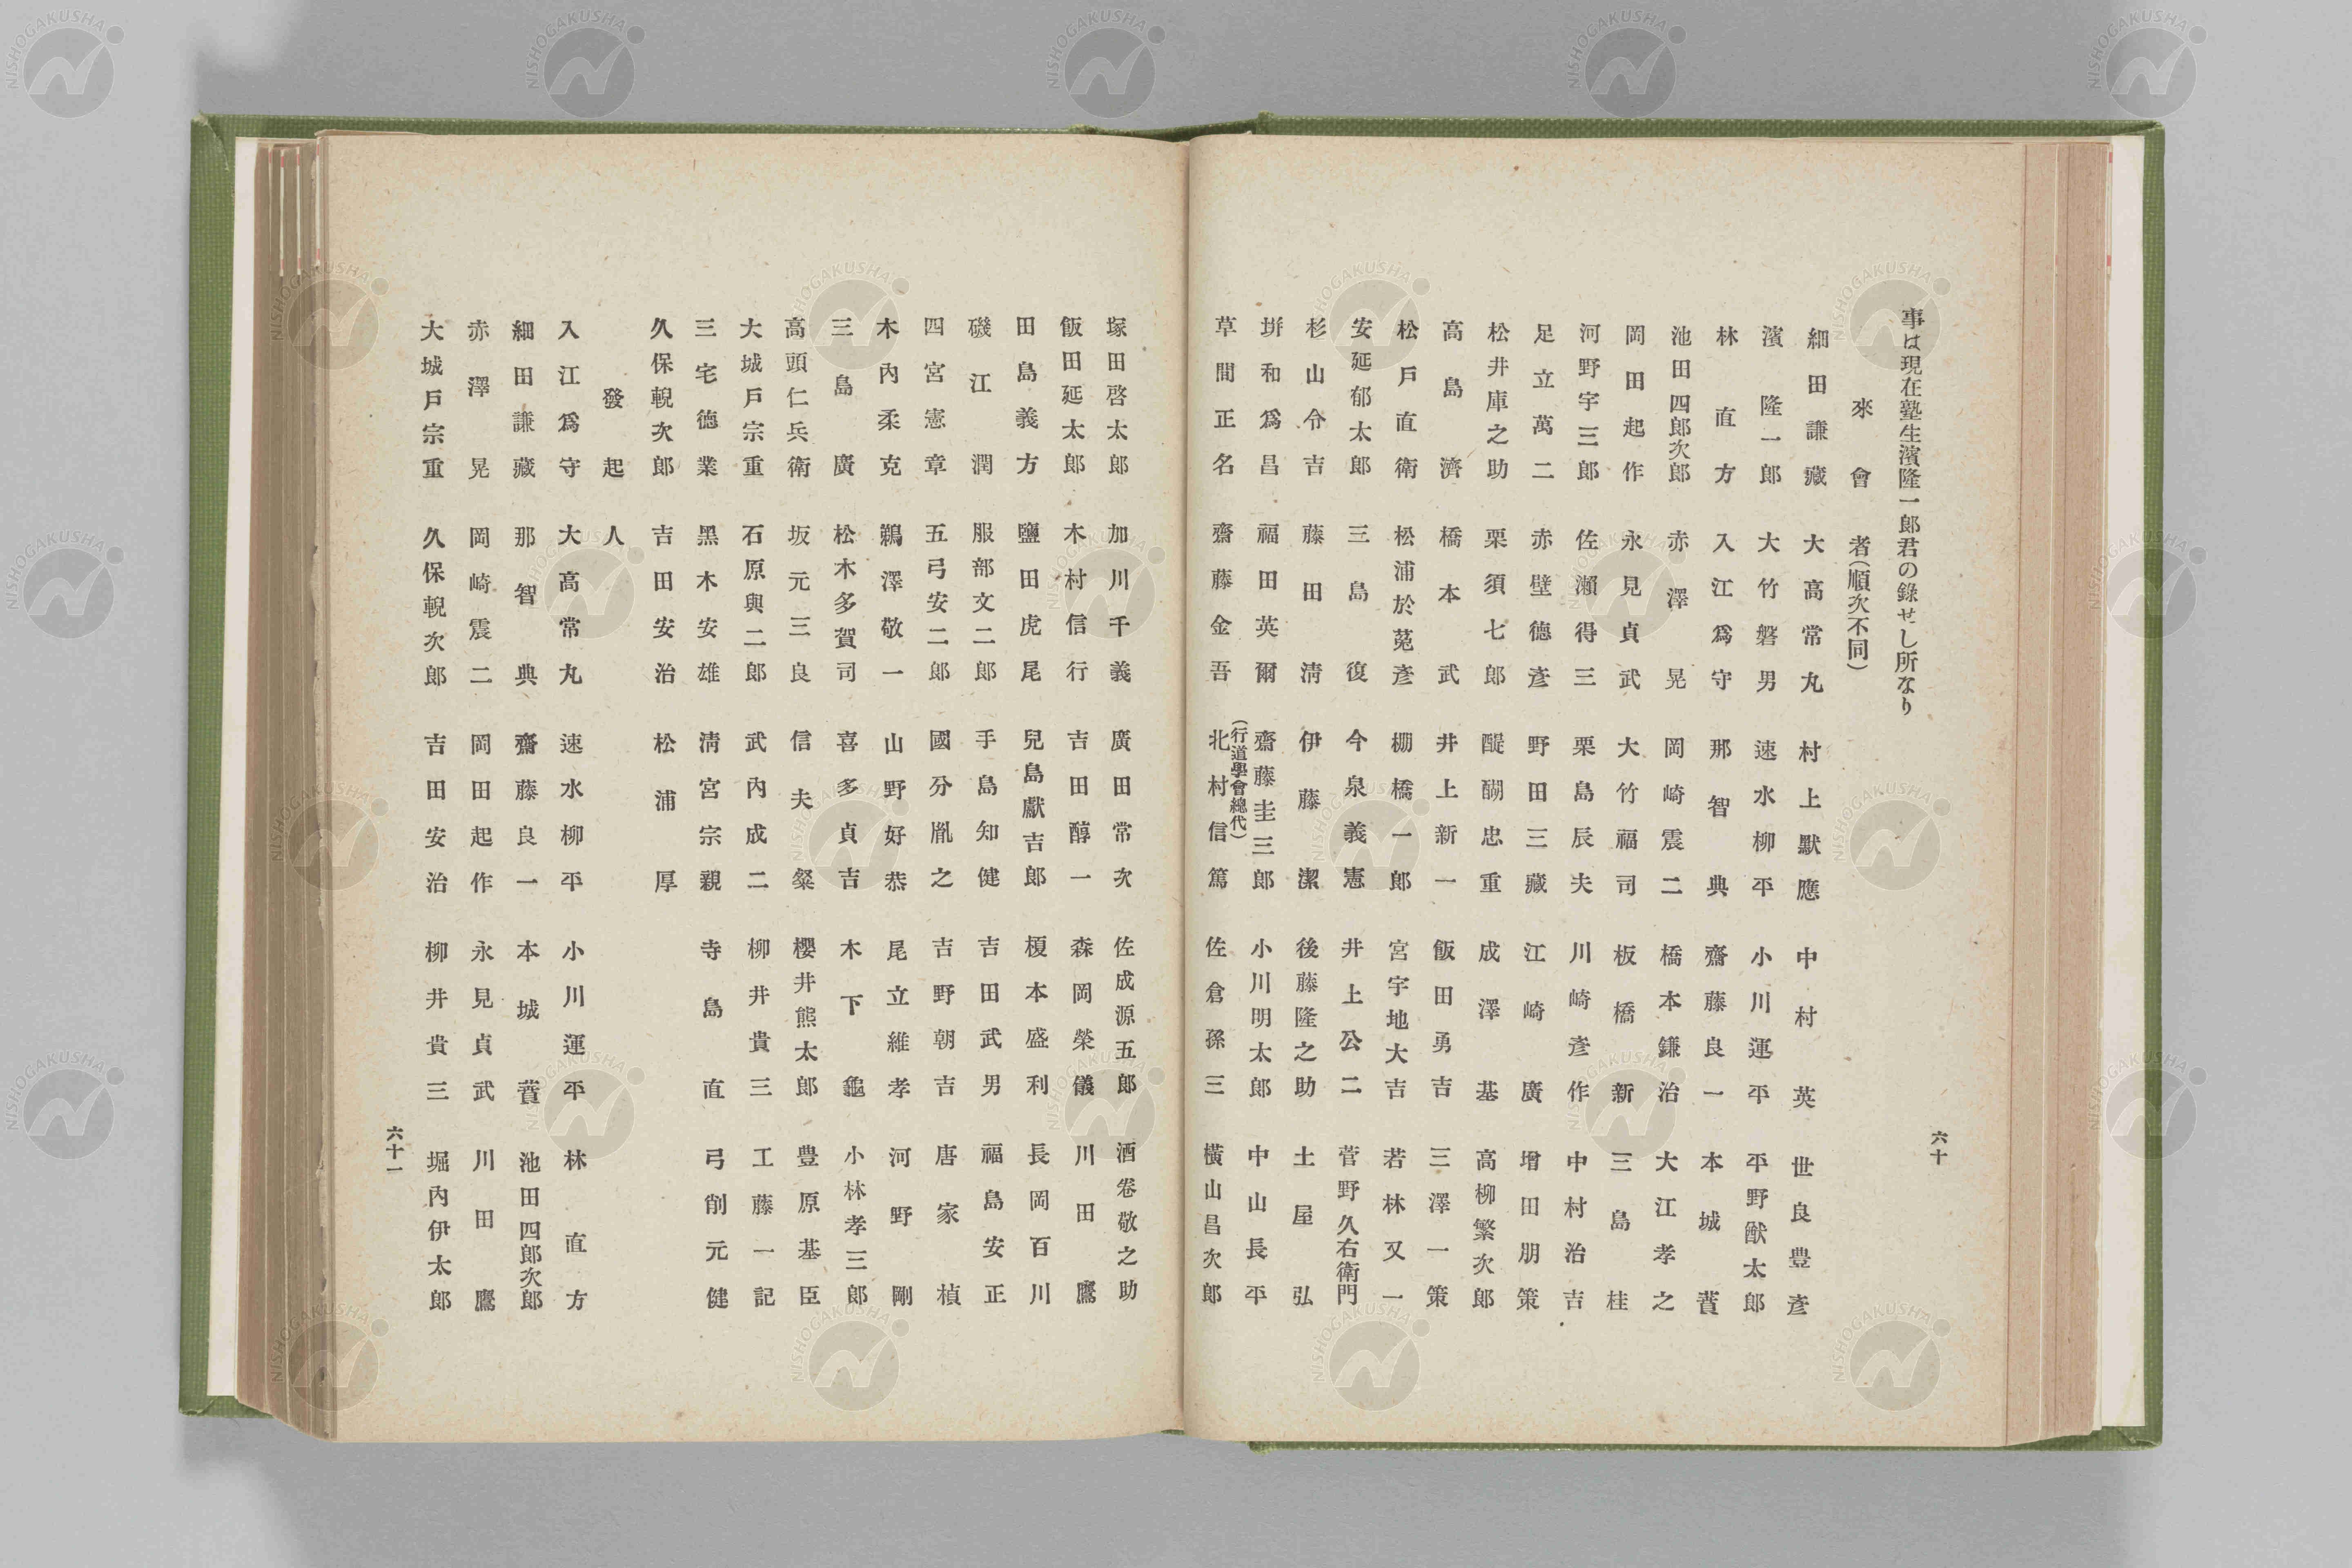 事は現在塾生濱隆一郎君の錄せし所なり
來會者(順次不同)
細田謙藏 大高常丸 村上默應 中村英 世良豊彥
濱隆一郎 大竹磐男 速水柳平 小川運平 平野猷太郎
林直方 入江爲守 那智典 齋藤良一 本城蕡
池田四郎次郎 赤澤晃 岡崎震二 橋本鎌治 大江孝之
岡田起作 永見貞武 大竹福司 板橋新 三島桂
河野宇三郎 佐瀨得三 栗島辰夫 川崎彥作 中村治吉
足立萬二 赤壁德彥 野田三藏 江崎廣 增田朋策
松井庫之助 栗須七郎 醍醐忠重 成澤基 高柳繁次郎
高島濟 橋本武 井上新一 飯田勇吉 三澤一策
松戶直衛 松浦於菟彥 棚橋一郎 宮宇地大吉 若林又一
安延郁太郎 三島復 今泉義憲 井上公二 菅野久右衛門
杉山令吉 藤田淸 伊藤潔 後藤隆之助 土屋弘
垪和爲昌 福田英爾 齋藤圭三郎 小川明太郎 中山長平
(行道學會總代)
草間正名 齋藤金吾 北村信篤 佐倉孫三 橫山昌次郎
六十
塚田啓太郎 加川千義 廣田常次 佐成源五郎 酒卷敬之助
飯田延太郎 木村信行 吉田醇一 森岡榮儀 川田鷹
田島義方 鹽田虎尾 兒島獻吉郎 榎本盛利 長岡百川
磯江潤 服部文二郎 手島知健 吉田武男 福島安正
四宮憲章 五弓安二郎 國分胤之 吉野朝吉 唐家楨
木內柔克 鵜澤敬一 山野好恭 尾立維孝 河野剛
三島廣 松木多賀司 喜多貞吉 木下龜 小林孝三郎
高頭仁兵衛 坂元三良 信夫粲 櫻井熊太郎 豊原基臣
大城戶宗重 石原與二郎 武內成二 柳井貴三 工藤一記
三宅德業 黑木安雄 淸宮宗親 寺島直 弓削元健
久保輗次郎 吉田安治 松浦厚
發起人
入江爲守 大高常丸 速水柳平 小川運平 林直方
細田謙藏 那智典 齋藤良一 本城蕡 池田四郎次郎
赤澤晃 岡崎震二 岡田起作 永見貞武 川田鷹
大城戶宗重 久保輗次郎 吉田安治 柳井貴三 堀內伊太郎
六十一